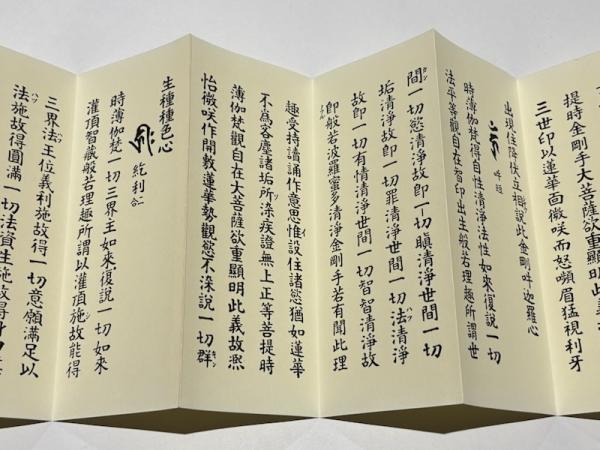 提時金剛手大菩薩欲重顯明此義
三世印以蓮華面微咲而怒嚬眉猛視利牙
出現住降伏立相說此金剛吽迦羅心
吽短
時薄伽梵得自性清淨法性如來復說一切
法平等觀自在智印出生般若理趣所謂世
間一切慾清淨故即一切瞋清淨世間一切
垢清淨故即一切罪清淨世間一切法清淨
故即一切有情清淨世間一切智智清淨故
即般若波羅蜜多清淨金剛手若有聞此理
趣受持讀誦作意思惟設住諸慾猶如蓮華
不爲客塵諸垢所染疾證無上正等菩提時
薄伽梵觀自在大菩薩欲重顯明此義故熙
怡微咲作開敷蓮華勢觀慾不染說一切群
生種種色心
紇利二合
時薄伽梵一切三界王如來復說一切如來
灌頂智藏般若理趣所謂以灌頂施故能得
三界法王位義利施故得一切意願滿足以
法施故得圓滿一切法資生施故得身口